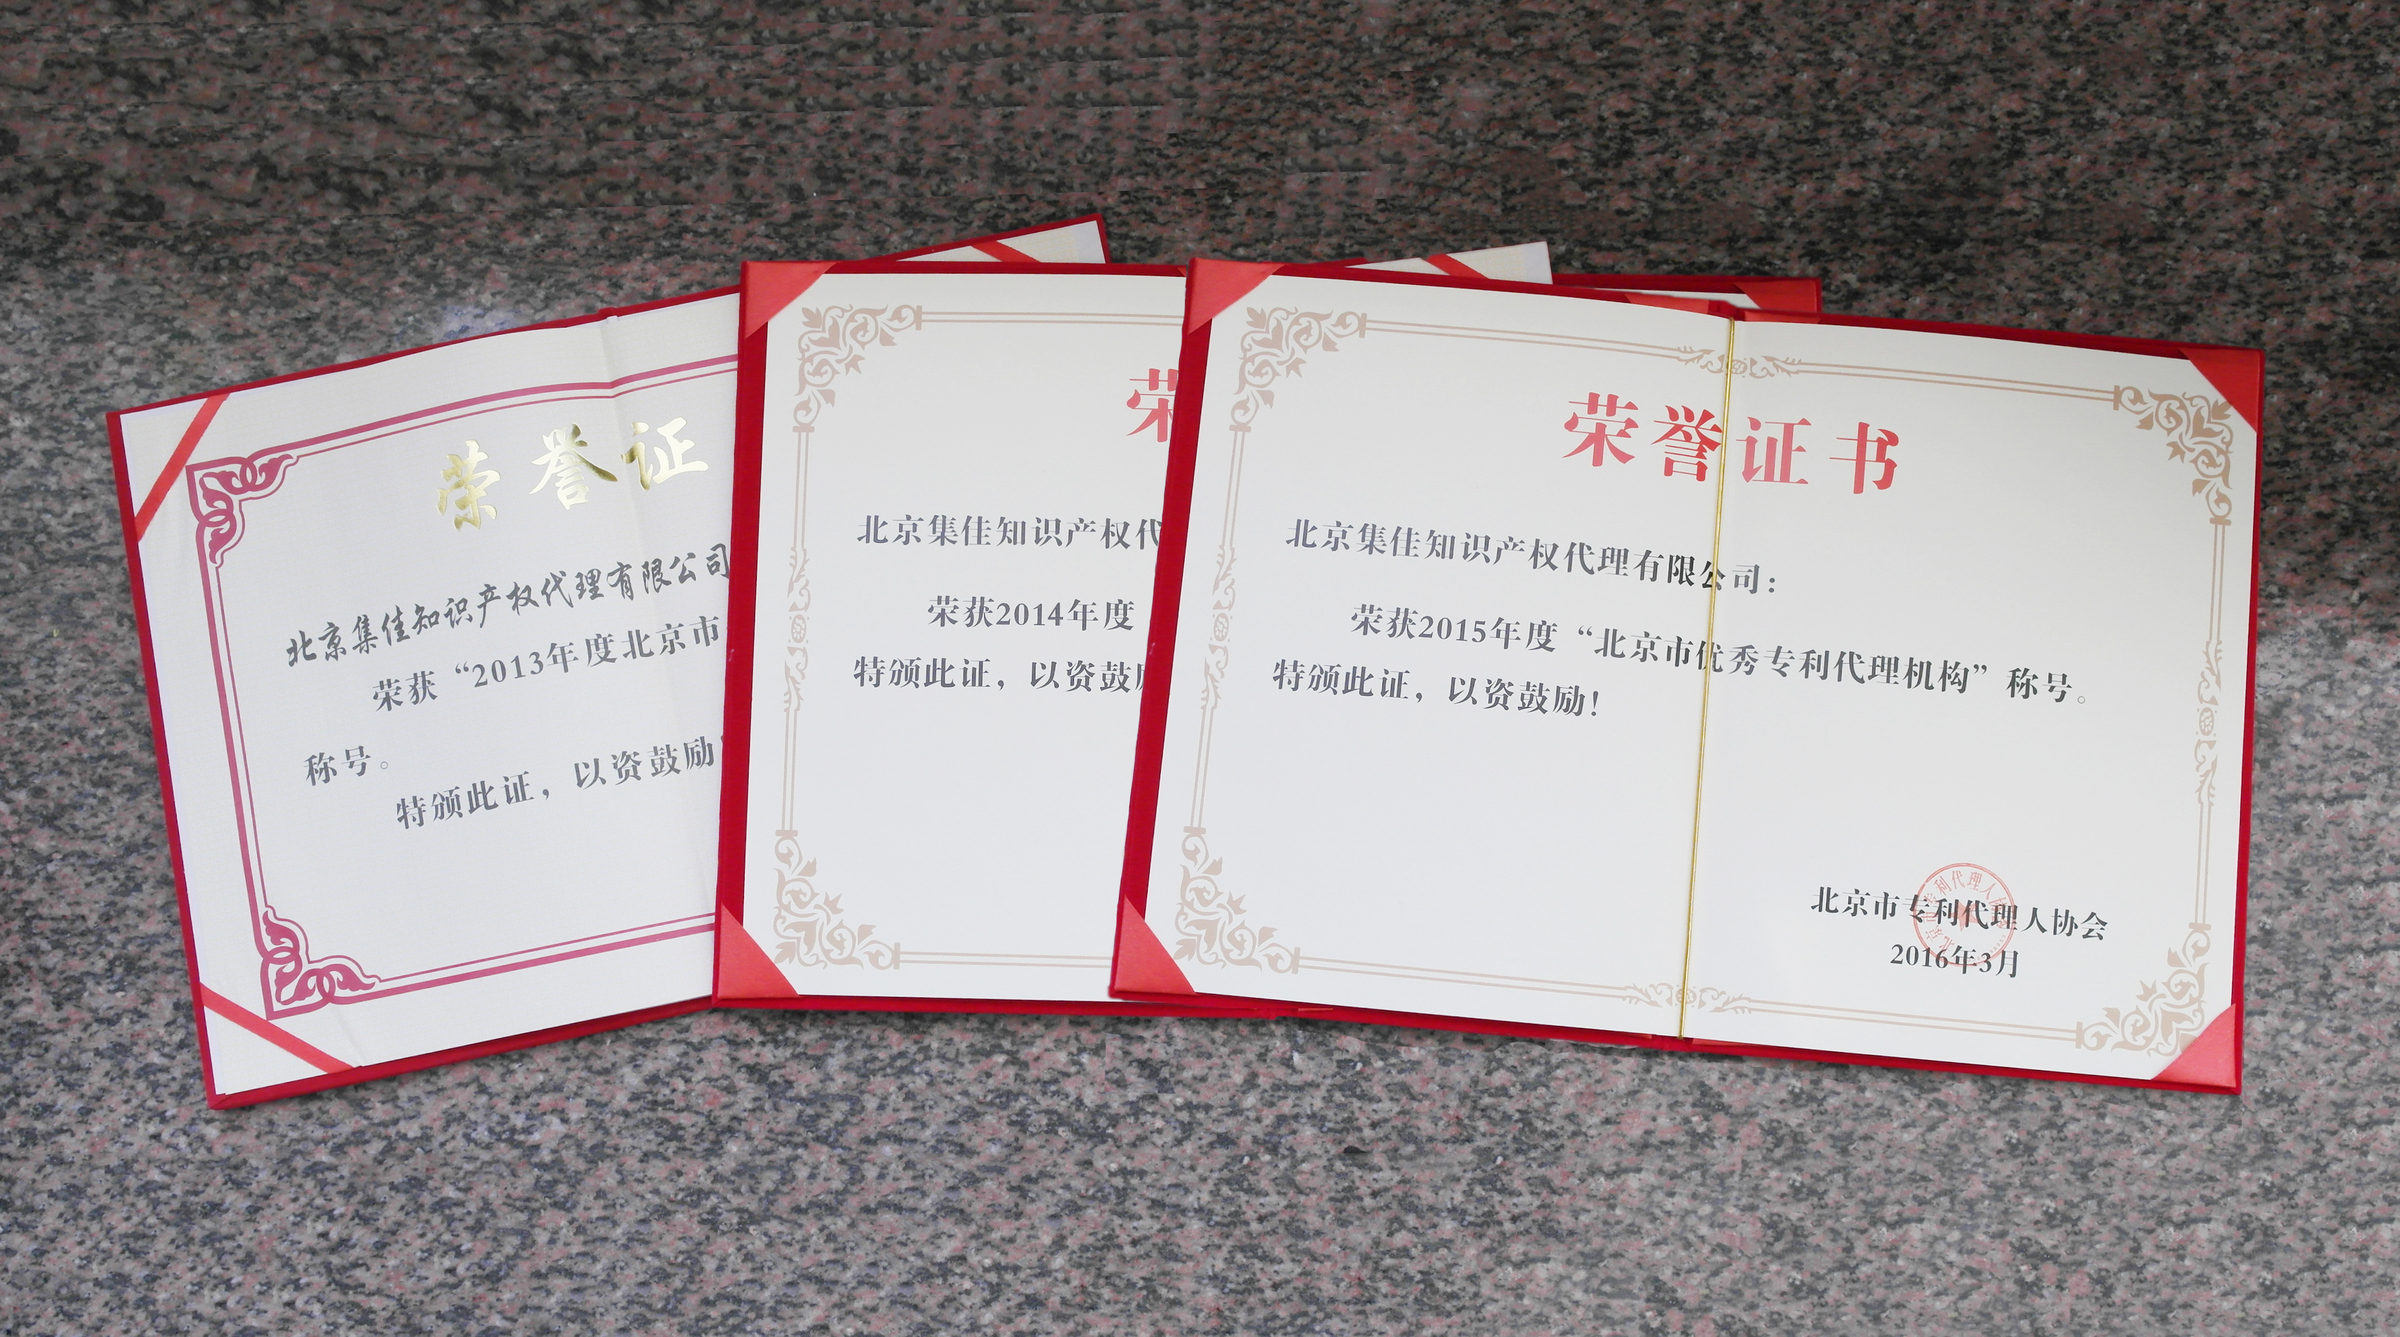 荣誉证
北京集佳知识产权代理有限公司
荣获“2013年度北京市
称号。
特颁此证，以资鼓励
北京集佳知识产权代
荣获2014年度
特颁此证，以资鼓
荣誉证书
北京集佳知识产权代理有限公司：
荣获2015年度“北京市优秀专利代理机构”称号。
特颁此证，以资鼓励！
北京市专利代理人协会
2016年3月